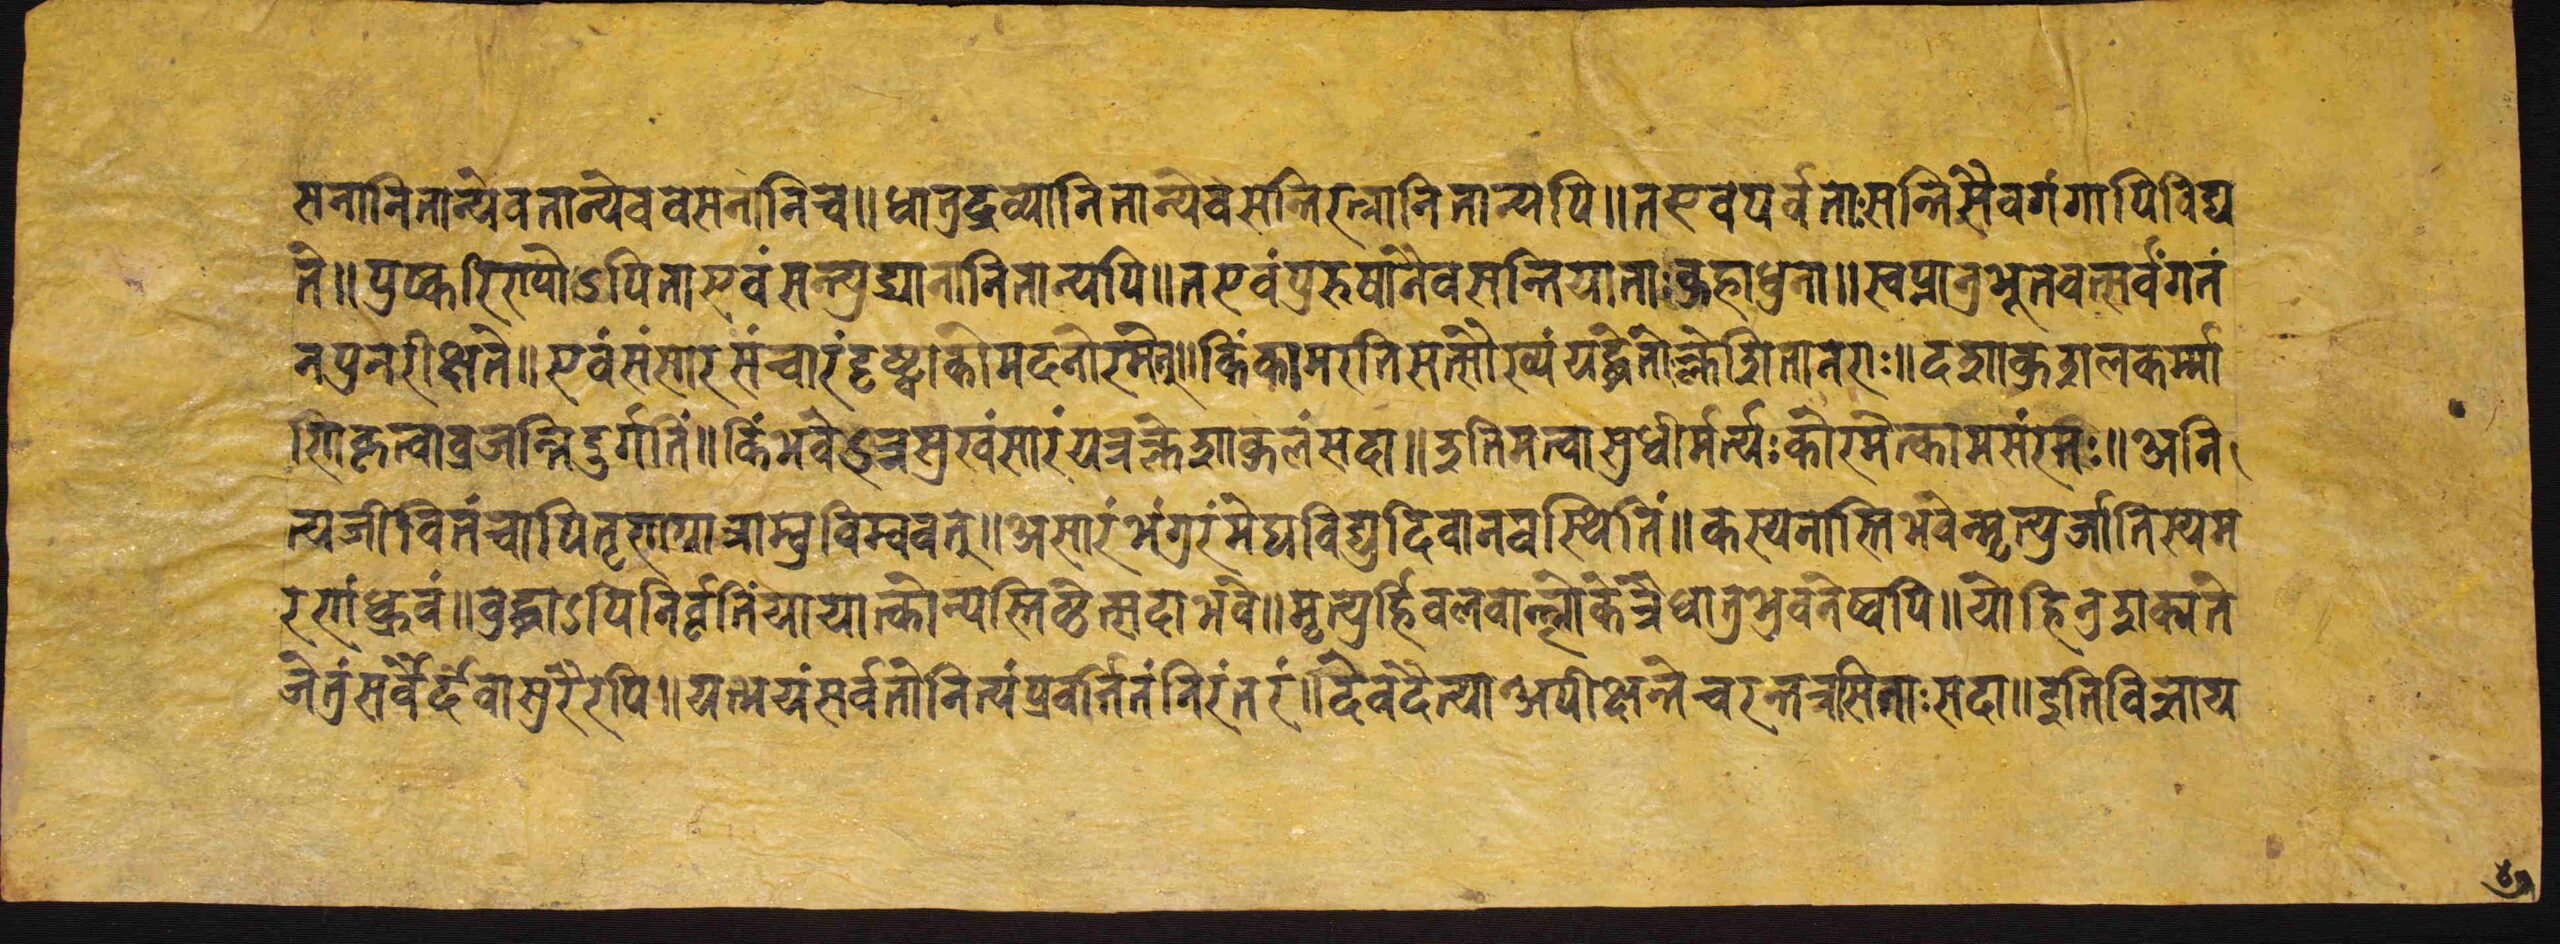 सनानितान्येवतान्येववसनानिच॥धातुद्रव्यानितान्येवसन्तिरत्नानितान्यपि॥तएवपर्वताःसन्तिसैवगंगापिविद्य
ते॥पुष्करिण्योऽपिताएवसन्त्युद्यानानितान्यपि॥तएवपुरुषानैवसन्तियाताःकुहाधुना॥स्वप्नानुभूतवत्सर्वंगतं
नपुनरीक्षते॥एवंसंसारसंचारंदृष्ट्वाकोमदनोरमेत्॥किंकामरतिसत्सौख्यंयद्धेतोक्लेशितानराः॥दशाकुशलकर्म्मा
णिकृत्वाव्रजन्तिदुर्गतिं॥किंभवेऽत्रसुखंसारंयत्रक्लेशाकुलंसदा॥इतिमत्वासुधीर्मर्त्यःकोरमेत्कामसंरमः॥अनि
त्यजीवितंचापितृणाग्राम्बुविम्ववत्॥असारंभंगुरंमेघविद्युदिवानवस्थितिं॥कस्यनास्तिभवेन्मृत्युर्जातिस्यम
रणंध्रुवं॥वुद्धाऽपिनिर्वृतिंयायात्कोन्यस्तिष्ठेत्सदाभवे॥मृत्युर्हिवलवान्लोकेत्रैधातुभुवनेष्वपि॥योहिनुशक्यते
जेतुंसर्वैर्देवासुरैरपि॥यत्भयंसर्वतोनित्यंप्रवर्त्तितंनिरंतरं॥देवदैत्याअपीक्षन्तेचरन्तत्रसिताःसदा॥इतिविज्ञाय